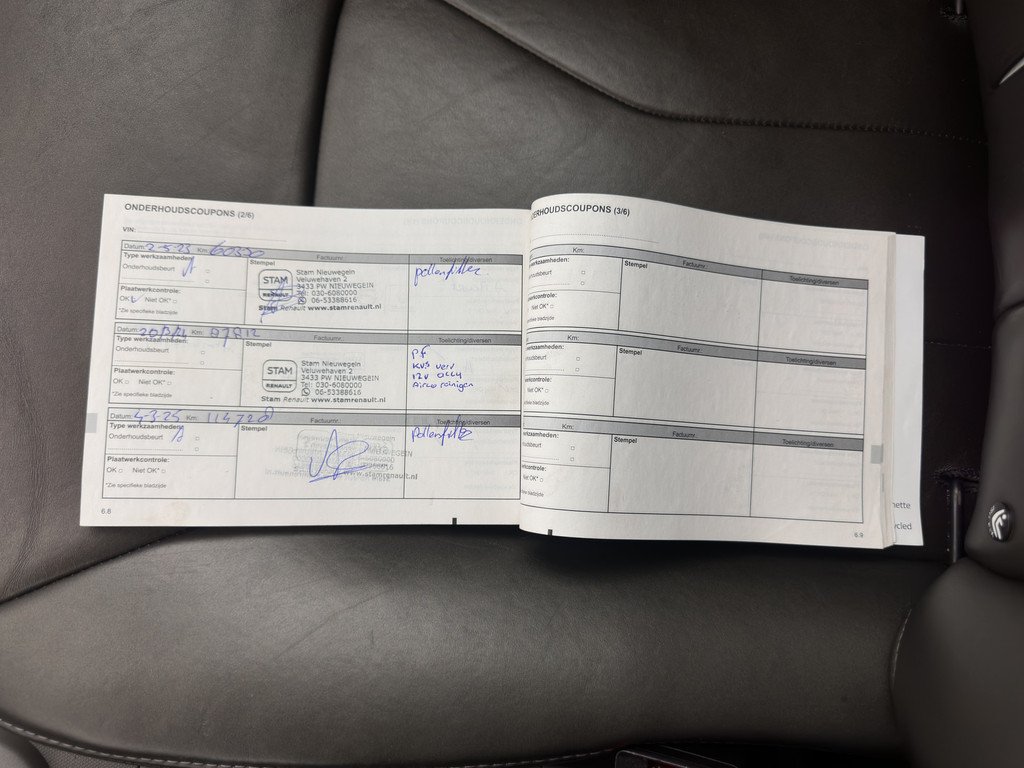 ONDERHOUDSCOUPONS (2/6)
VIN:
Datum: 2-5-23 Km:
Type werkzaamheden:
Onderhoudsbeurt A
Plaatwerkcontrole:
OK Niet OK*
*Zie specifieke bladzijde
Stempel Factuurnr.:
STAM
RENAULT
Stam Nieuwegein
Veluwehaven 2
3433 PW NIEUWEGEIN
Tel: 030-6080000
06-53388616
Stam Renault www.stamrenault.nl
Toelichting/diversen
pollenfilter
Datum: Km:
Type werkzaamheden:
Onderhoudsbeurt
Plaatwerkcontrole:
OK Niet OK*
*Zie specifieke bladzijde
Stempel Factuurnr.:
STAM
RENAULT
Stam Nieuwegein
Veluwehaven 2
3433 PW NIEUWEGEIN
Tel: 030-6080000
06-53388616
Stam Renault www.stamrenault.nl
Toelichting/diversen
Pf
KVS verv
12V accu
Airco reinigen
Datum: 4-3-25 Km: 114728
Type werkzaamheden:
Onderhoudsbeurt A
Plaatwerkcontrole:
OK Niet OK*
*Zie specifieke bladzijde
Stempel Factuurnr.:
www.stamrenault.nl
Toelichting/diversen
pollenfilter
6.8
ERHOUDSCOUPONS (3/6)
Km:
werkzaamheden:
oudsbeurt
werkcontrole:
Niet OK*
specifieke bladzijde
Stempel Factuurnr.:
Toelichting/diversen
Km:
werkzaamheden:
oudsbeurt
werkcontrole:
Niet OK*
specifieke bladzijde
Stempel Factuurnr.:
Toelichting/diversen
Km:
werkzaamheden:
oudsbeurt
werkcontrole:
Niet OK*
specifieke bladzijde
Stempel Factuurnr.:
Toelichting/diversen
6.9
nette
ycled